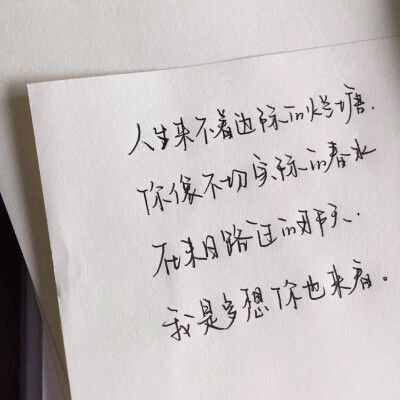 人生来不着边际的烂塘.
你像不切实际的春水
在末日路过的那天.
我是多想你也来看。